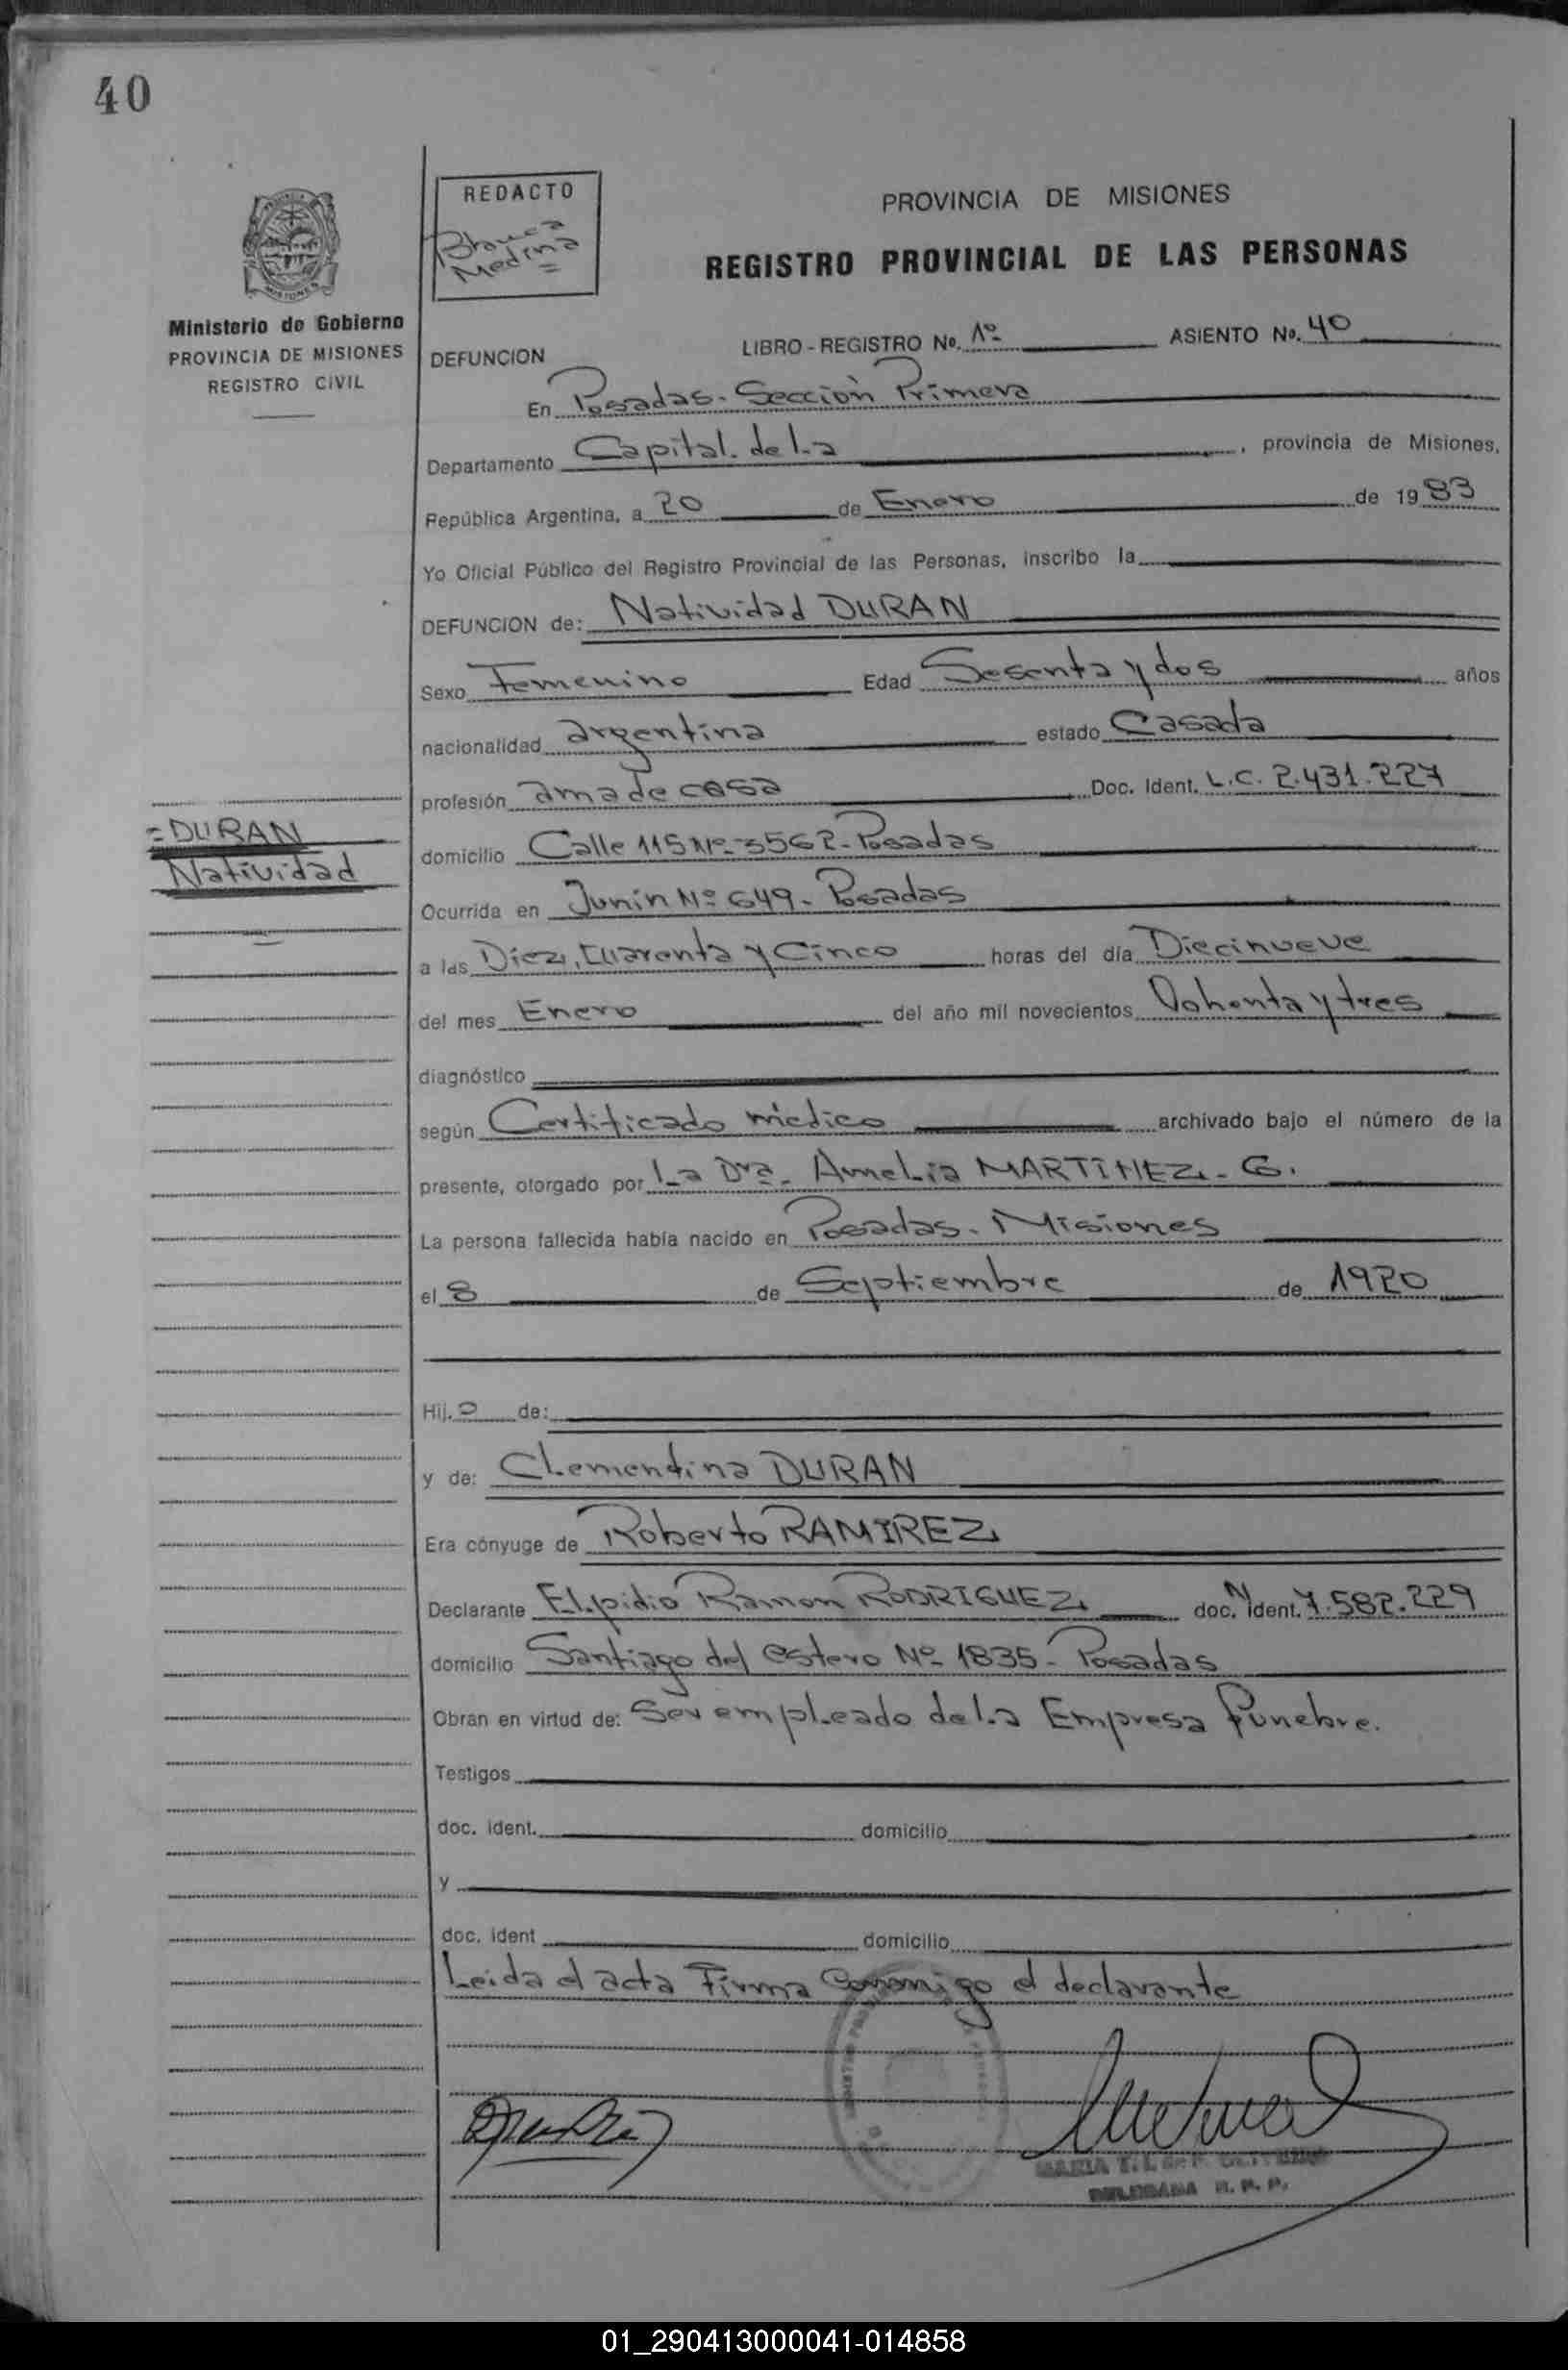 40
REDACTO
Blanca
Medina
PROVINCIA DE MISIONES
REGISTRO PROVINCIAL DE LAS PERSONAS
MISIONES
Ministerio de Gobierno
PROVINCIA DE MISIONES
REGISTRO CIVIL
DEFUNCION LIBRO - REGISTRO No. 1º ASIENTO No. 40
En Posadas - Sección Primera
Departamento Capital de la , provincia de Misiones,
República Argentina, a 20 de Enero de 1983
Yo Oficial Público del Registro Provincial de las Personas, inscribo la
DEFUNCION de: Natividad DURAN
Sexo Femenino Edad Sesenta y dos años
nacionalidad argentina estado Casada
profesión ama de casa Doc. Ident. L.C. 2.431.227
=DURAN
Natividad
domicilio Calle 115 Nº 3562 - Posadas
Ocurrida en Junín Nº 649 - Posadas
a las Diez, Cuarenta y Cinco horas del día Diecinueve
del mes Enero del año mil novecientos Ochenta y tres
diagnóstico
según Certificado médico archivado bajo el número de la
presente, otorgado por La Dra. Amelia MARTINEZ - G.
La persona fallecida había nacido en Posadas - Misiones
el 8 de Septiembre de 1920
Hij. a de:
y de: Clementina DURAN
Era cónyuge de Roberto RAMIREZ
Declarante Elpidio Ramon RODRIGUEZ doc. N ident. 7.582.229
domicilio Santiago del estero Nº 1835 - Posadas
Obran en virtud de: Ser empleado de la Empresa Funebre.
Testigos
doc. ident. domicilio
y
doc. ident domicilio
Leida el acta Firma Conmigo el declarante
MARIA T. I. de
DELEGADA R. P. P.
01_290413000041-014858